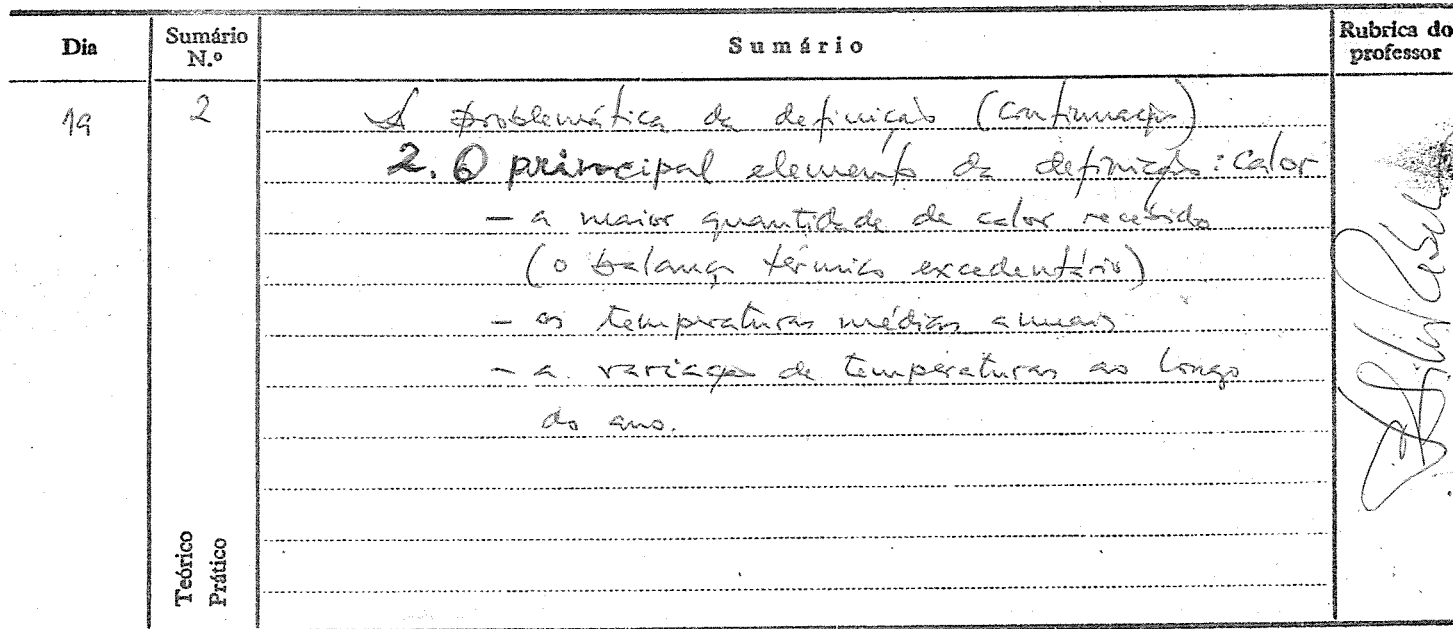 Dia
Sumário N.º
Sumário
Rubrica do professor
19
2
A problemática da definição (continuação)
2. O principal elemento da definição: calor
- a maior quantidade de calor recebido
(o balanço térmico excedentário)
- as temperaturas médias anuais
- a variação de temperaturas ao longo
do ano.
Teórico
Prático